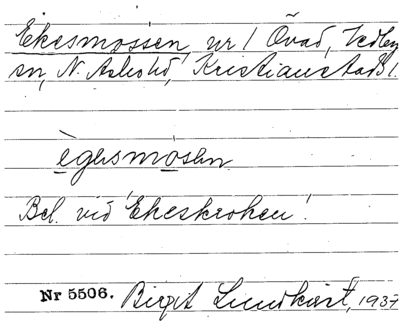 Ekesmossen nr 1 Övad, Vedby
sn, N. Åsbohd, Kristianstads l.
ègəsmòsən
Bel. vid 'Ekeskroken'.
Nr 5506. Birgit Lundkvist, 1937